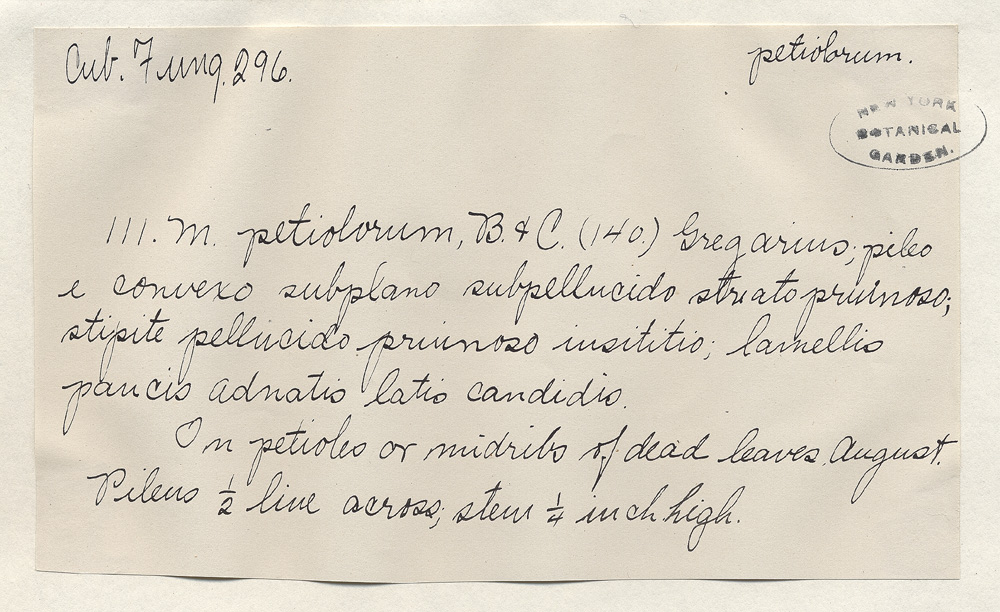 Cub. Fung. 296.
petiolorum.
NEW YORK
BOTANICAL
GARDEN.
111. M. petiolorum, B. & C. (140.) Gregarius; pileo
e convexo subplano subpellucido striato pruinoso;
stipite pellucido pruinoso insititio; lamellis
paucis adnatis latis candidis.
On petioles or midribs of dead leaves. August.
Pileus ½ line across; stem ¼ inch high.